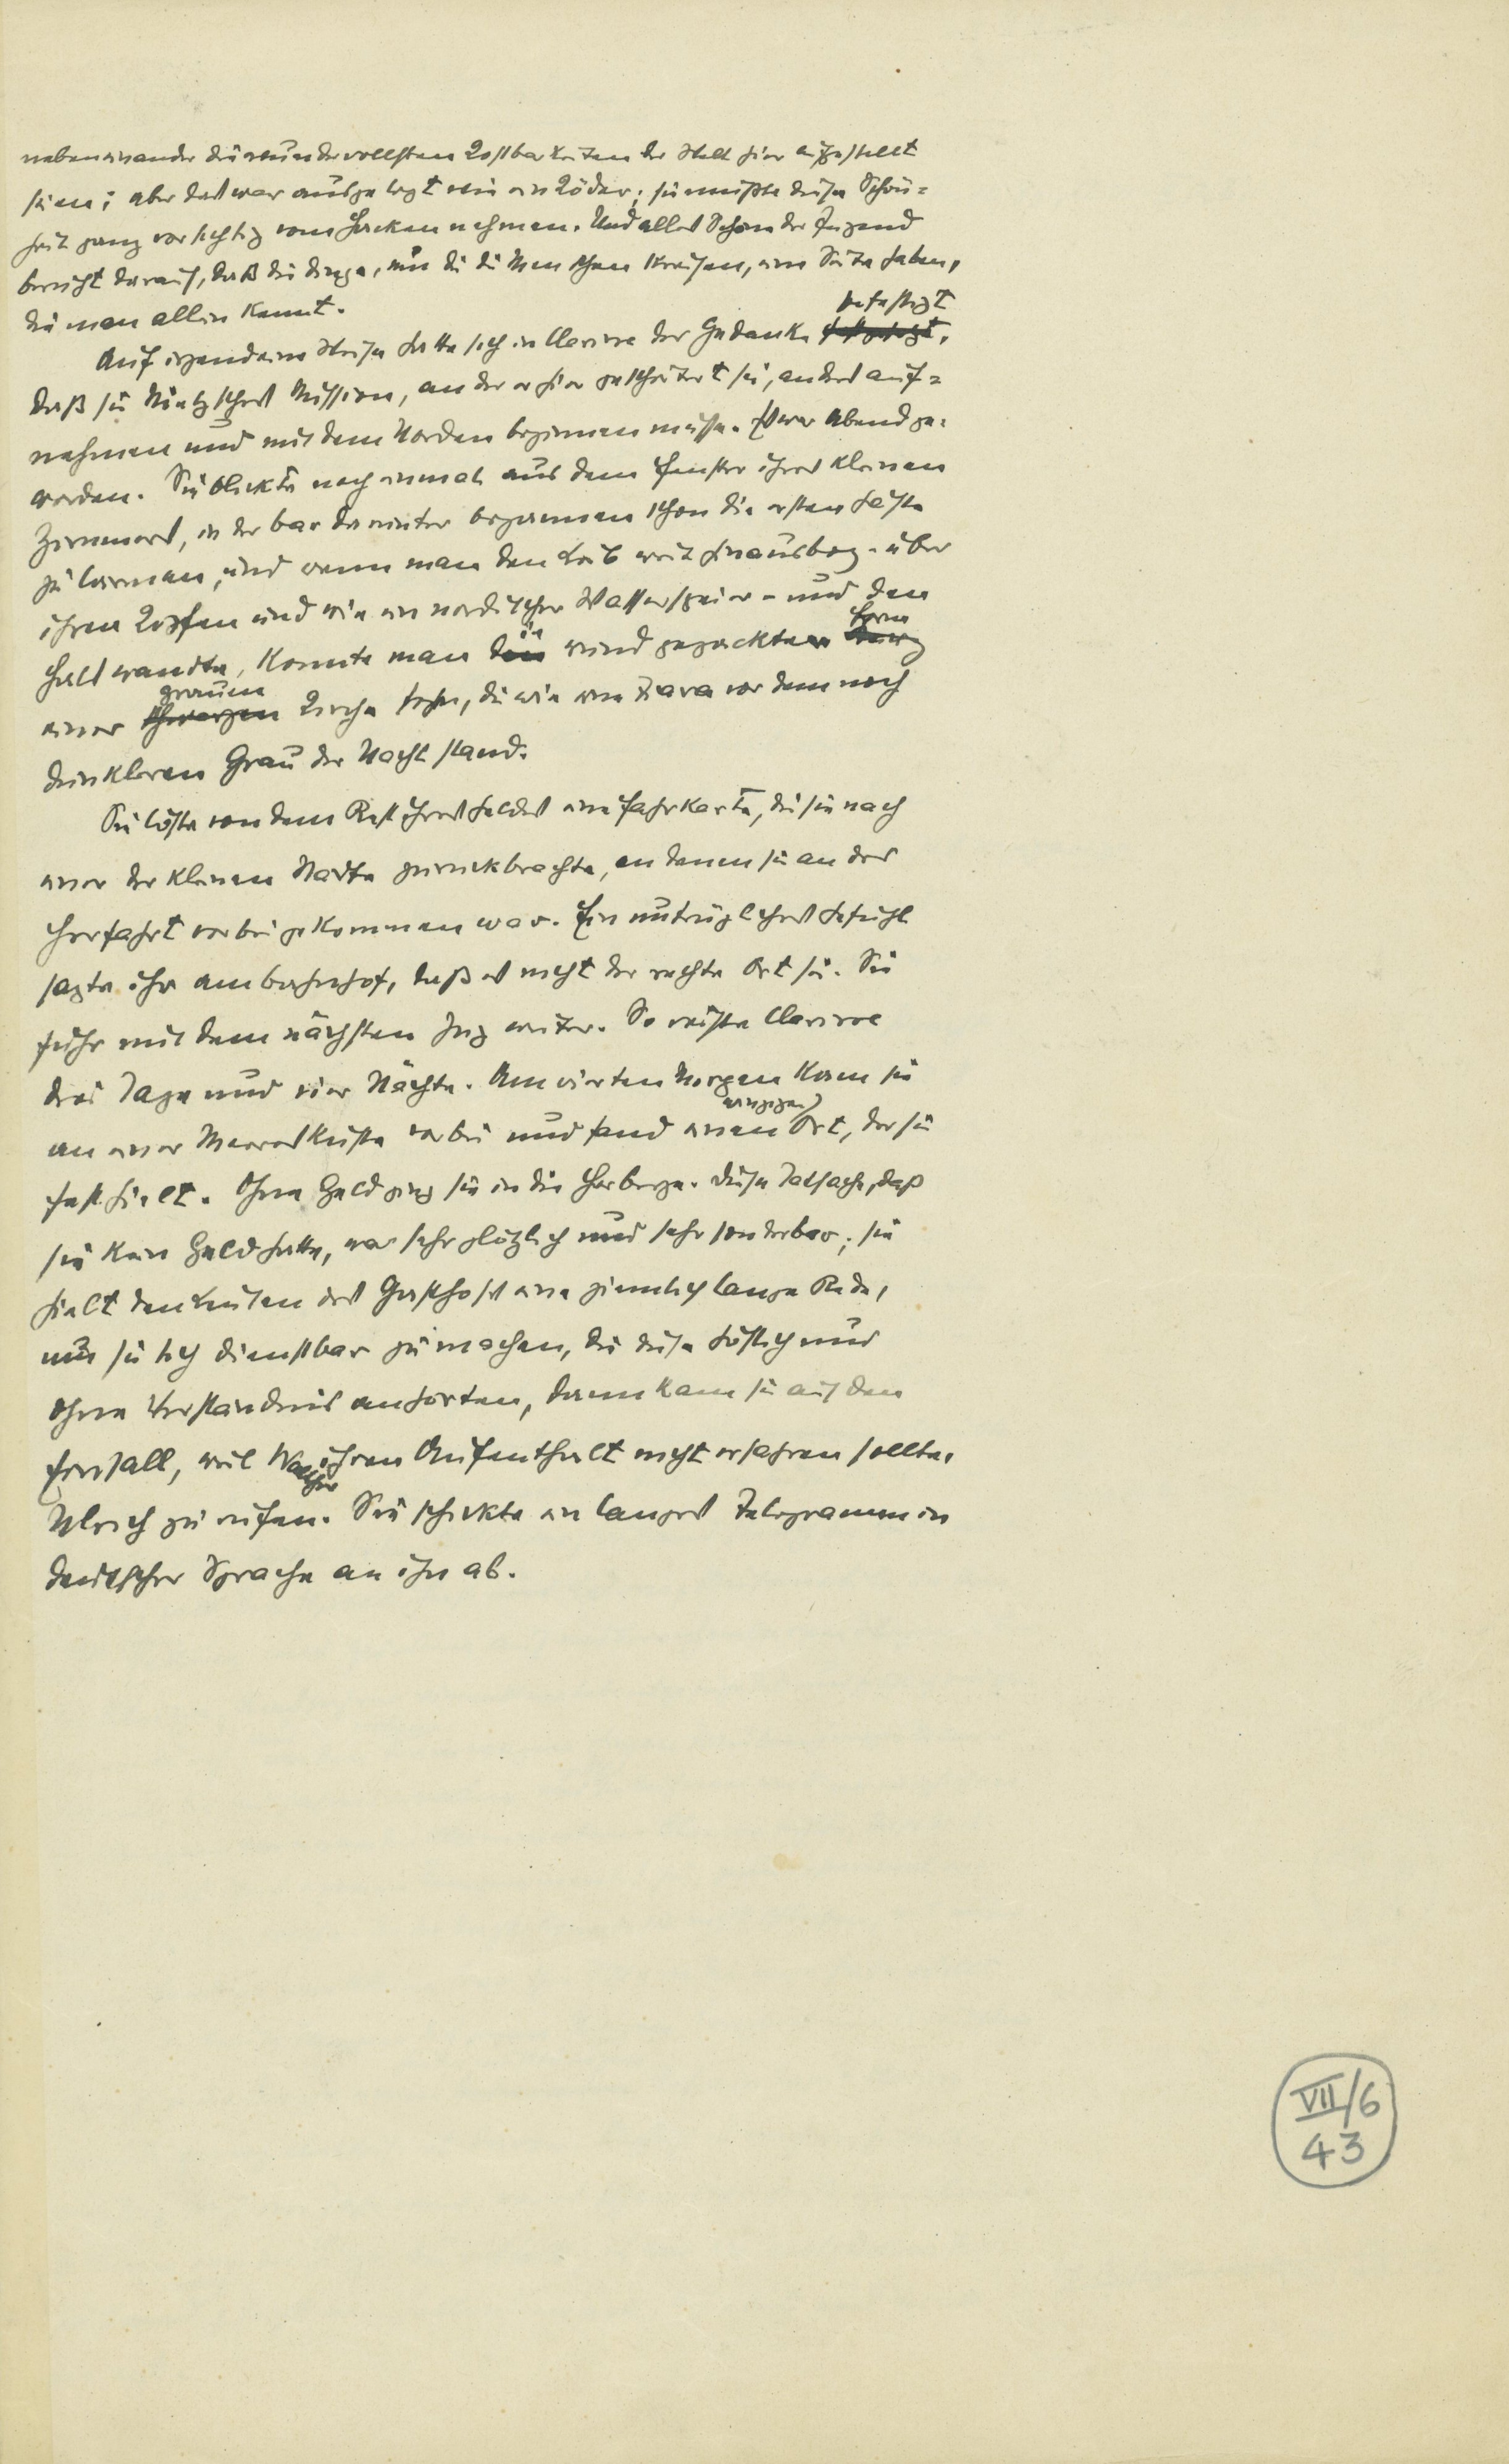 nebeneinander die wundervollsten Kostbarkeiten der Welt hier aufgestellt
seien; aber das war ausgelegt wie ein Köder; sie mußte diese Schön=
heit ganz vorsichtig vom Hacken nehmen. Und alles Schöne der Jugend
beruht darauf, daß die Dinge, um die die Menschen kreisen, eine Seite haben,
die man allein kennt.
befestigt
Auf irgendeine Weise hatte sich in Clarisse der Gedanke
daß sie Nietzsches Mission, an der er hier gescheitert sei, anders auf=
nehmen und mit dem Norden beginnen müsse. Es war Abend ge=
worden. Sie blickte noch einmal aus dem Fenster ihres kleinen
Zimmers, in der Bar darunter begannen schon die ersten Gäste
zu lärmen, und wenn man den Leib weit hinausbog – über
ihren Köpfen und wie ein nordischer Wasserspeier – und den
Form
Hals wandte, konnte man die rund gezackte
grauen
einer schwarzen Kirche sehn, die wie eine Tiara vor dem noch
dunkleren Grau der Nacht stand.
Sie löste von dem Rest ihres Geldes eine Fahrkarte, die sie nach
einer der kleinen Städte zurückbrachte, an denen sie an der
Herfahrt vorbeigekommen war. Ein untrügliches Gefühl
sagte ihr am Bahnhof, daß es nicht der rechte Ort sei. Sie
fuhr mit dem nächsten Zug weiter. So reiste Clarisse
drei Tage und vier Nächte. Am vierten Morgen kam sie
winzigen
an einer Meeresküste vorbei und fand einen Ort, der sie
festhielt. Ohne Geld ging sie in die Herberge. Diese Tatsache, daß
sie kein Geld hatte, war sehr plötzlich und sehr sonderbar; sie
hielt den Leuten des Gasthofs eine ziemlich lange Rede,
um sie sich dienstbar zu machen, die diese höflich und
ohne Verständnis anhörten, dann kam sie auf den
Einfall, weil Walther ihren Aufenthalt nicht erfahren sollte,
Ulrich zu rufen. Sie schickte ein langes Telegramm in
deutscher Sprache an ihn ab.
VII/6
43